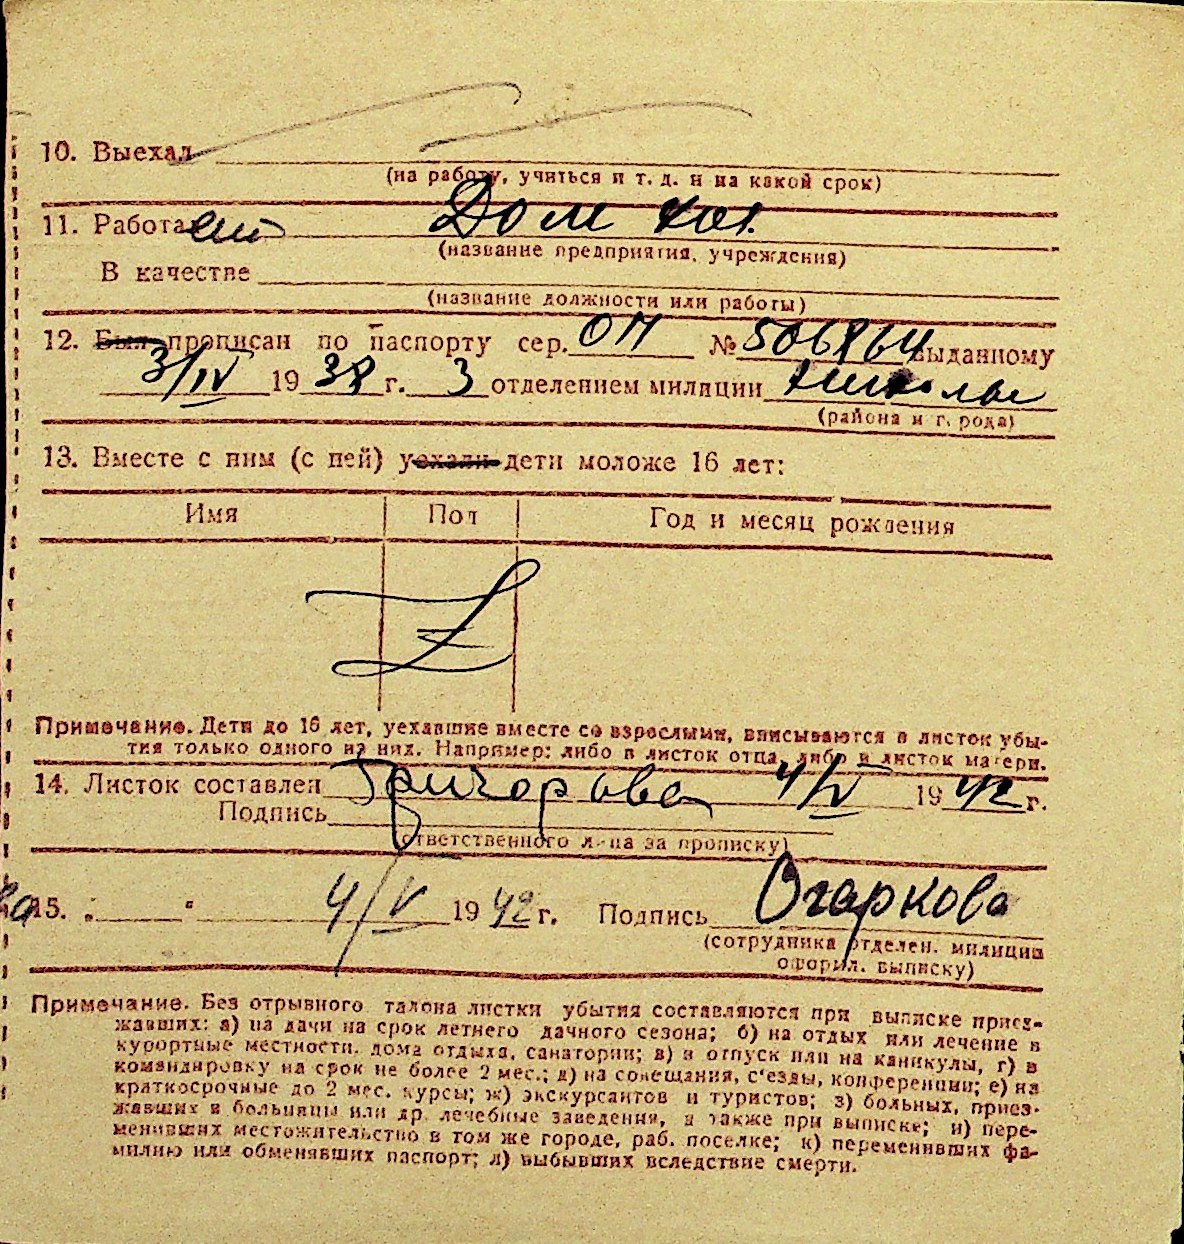 10. Выехал
(на работу, учиться и т. д. и на какой срок)
11. Работает Дом хоз.
(название предприятия, учреждения)
В качестве
(название должности или работы)
12. Был прописан по паспорту сер. ОП № 506864 выданному
3/IV 1938 г. 3 отделением милиции
(района и г. рода)
13. Вместе с ним (с ней) уехали дети моложе 16 лет:
Имя Пол Год и месяц рождения
Примечание. Дети до 16 лет, уехавшие вместе со взрослыми, вписываются в листок убы-
тия только одного из них. Например: либо в листок отца, либо в листок матери.
14. Листок составлен Григорьева 4/IV 1942 г.
Подпись
(ответственного лица за прописку)
15. „ “ 4/V 1942 г. Подпись Огаркова
(сотрудника отделен. милиции
оформл. выписку)
Примечание. Без отрывного талона листки убытия составляются при выписке приез-
жавших: а) на дачи на срок летнего дачного сезона; б) на отдых или лечение в
курортные местности, дома отдыха, санатории; в) в отпуск или на каникулы, г) в
командировку на срок не более 2 мес.; д) на совещания, с'езды, конференции; е) на
краткосрочные до 2 мес. курсы; ж) экскурсантов и туристов; з) больных, приез-
жавших в больницы или др. лечебные заведения, а также при выписке; и) пере-
менивших местожительство в том же городе, раб. поселке; к) переменивших фа-
милию или обменявших паспорт; л) выбывших вследствие смерти.